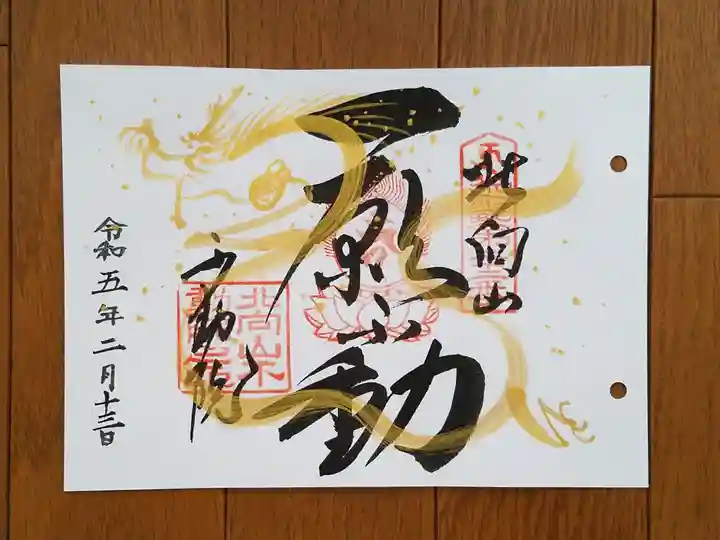 北向山
一願不動
不動院
令和五年二月十三日